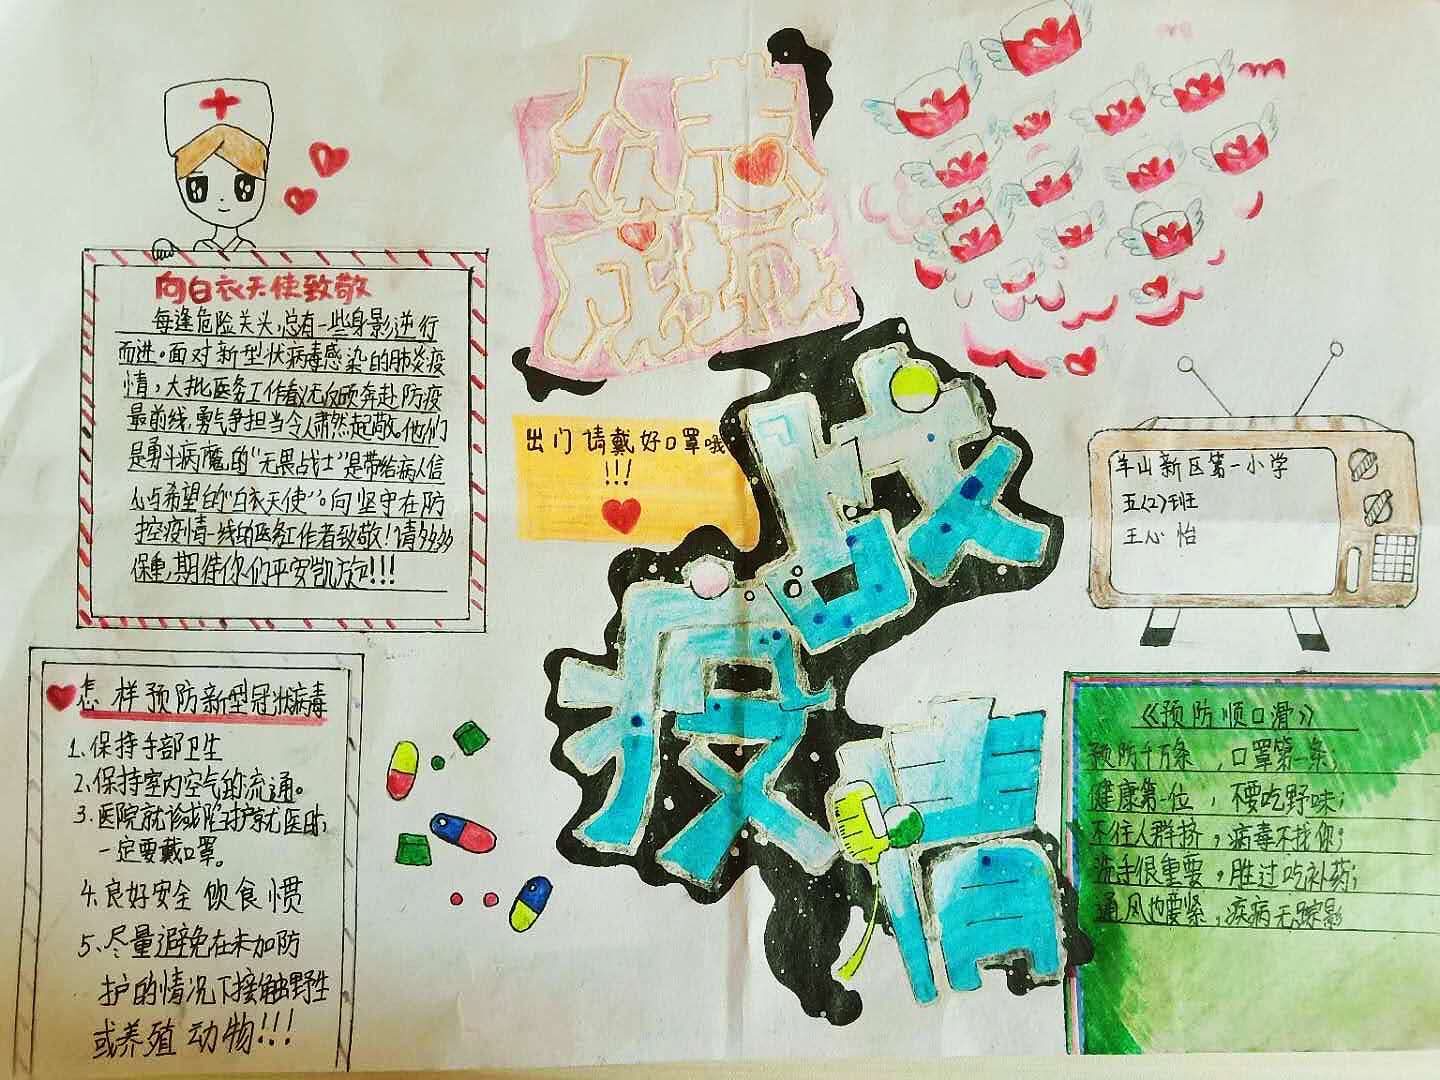 众志
成城
战
疫
情
向白衣天使致敬
每逢危险关头,总有一些身影逆行
而进。面对新型状病毒感染的肺炎疫
情,大批医务工作者义无反顾奔赴防疫
最前线,勇气争担当令人肃然起敬。他们
是勇斗病魔的“无畏战士”是带给病人信
心与希望的“白衣天使”。向坚守在防
控疫情一线的医务工作者致敬!请多多
保重,期待你们平安凯旋!!!
出门请戴好口罩哦
!!!
羊山新区第一小学
五(2)班
王心怡
怎样预防新型冠状病毒
1.保持手部卫生
2、保持室内空气的流通。
3、医院就诊或陪护就医时,
一定要戴口罩。
4、良好安全饮食惯
5、尽量避免在未加防
护的情况下接触野生
或养殖动物!!!
《预防顺口滑》
预防千万条,口罩第一条;
健康第一位,不要吃野味;
不住人群挤,病毒不找你;
洗手很重要,胜过吃补药;
通风也要紧,疾病无踪影